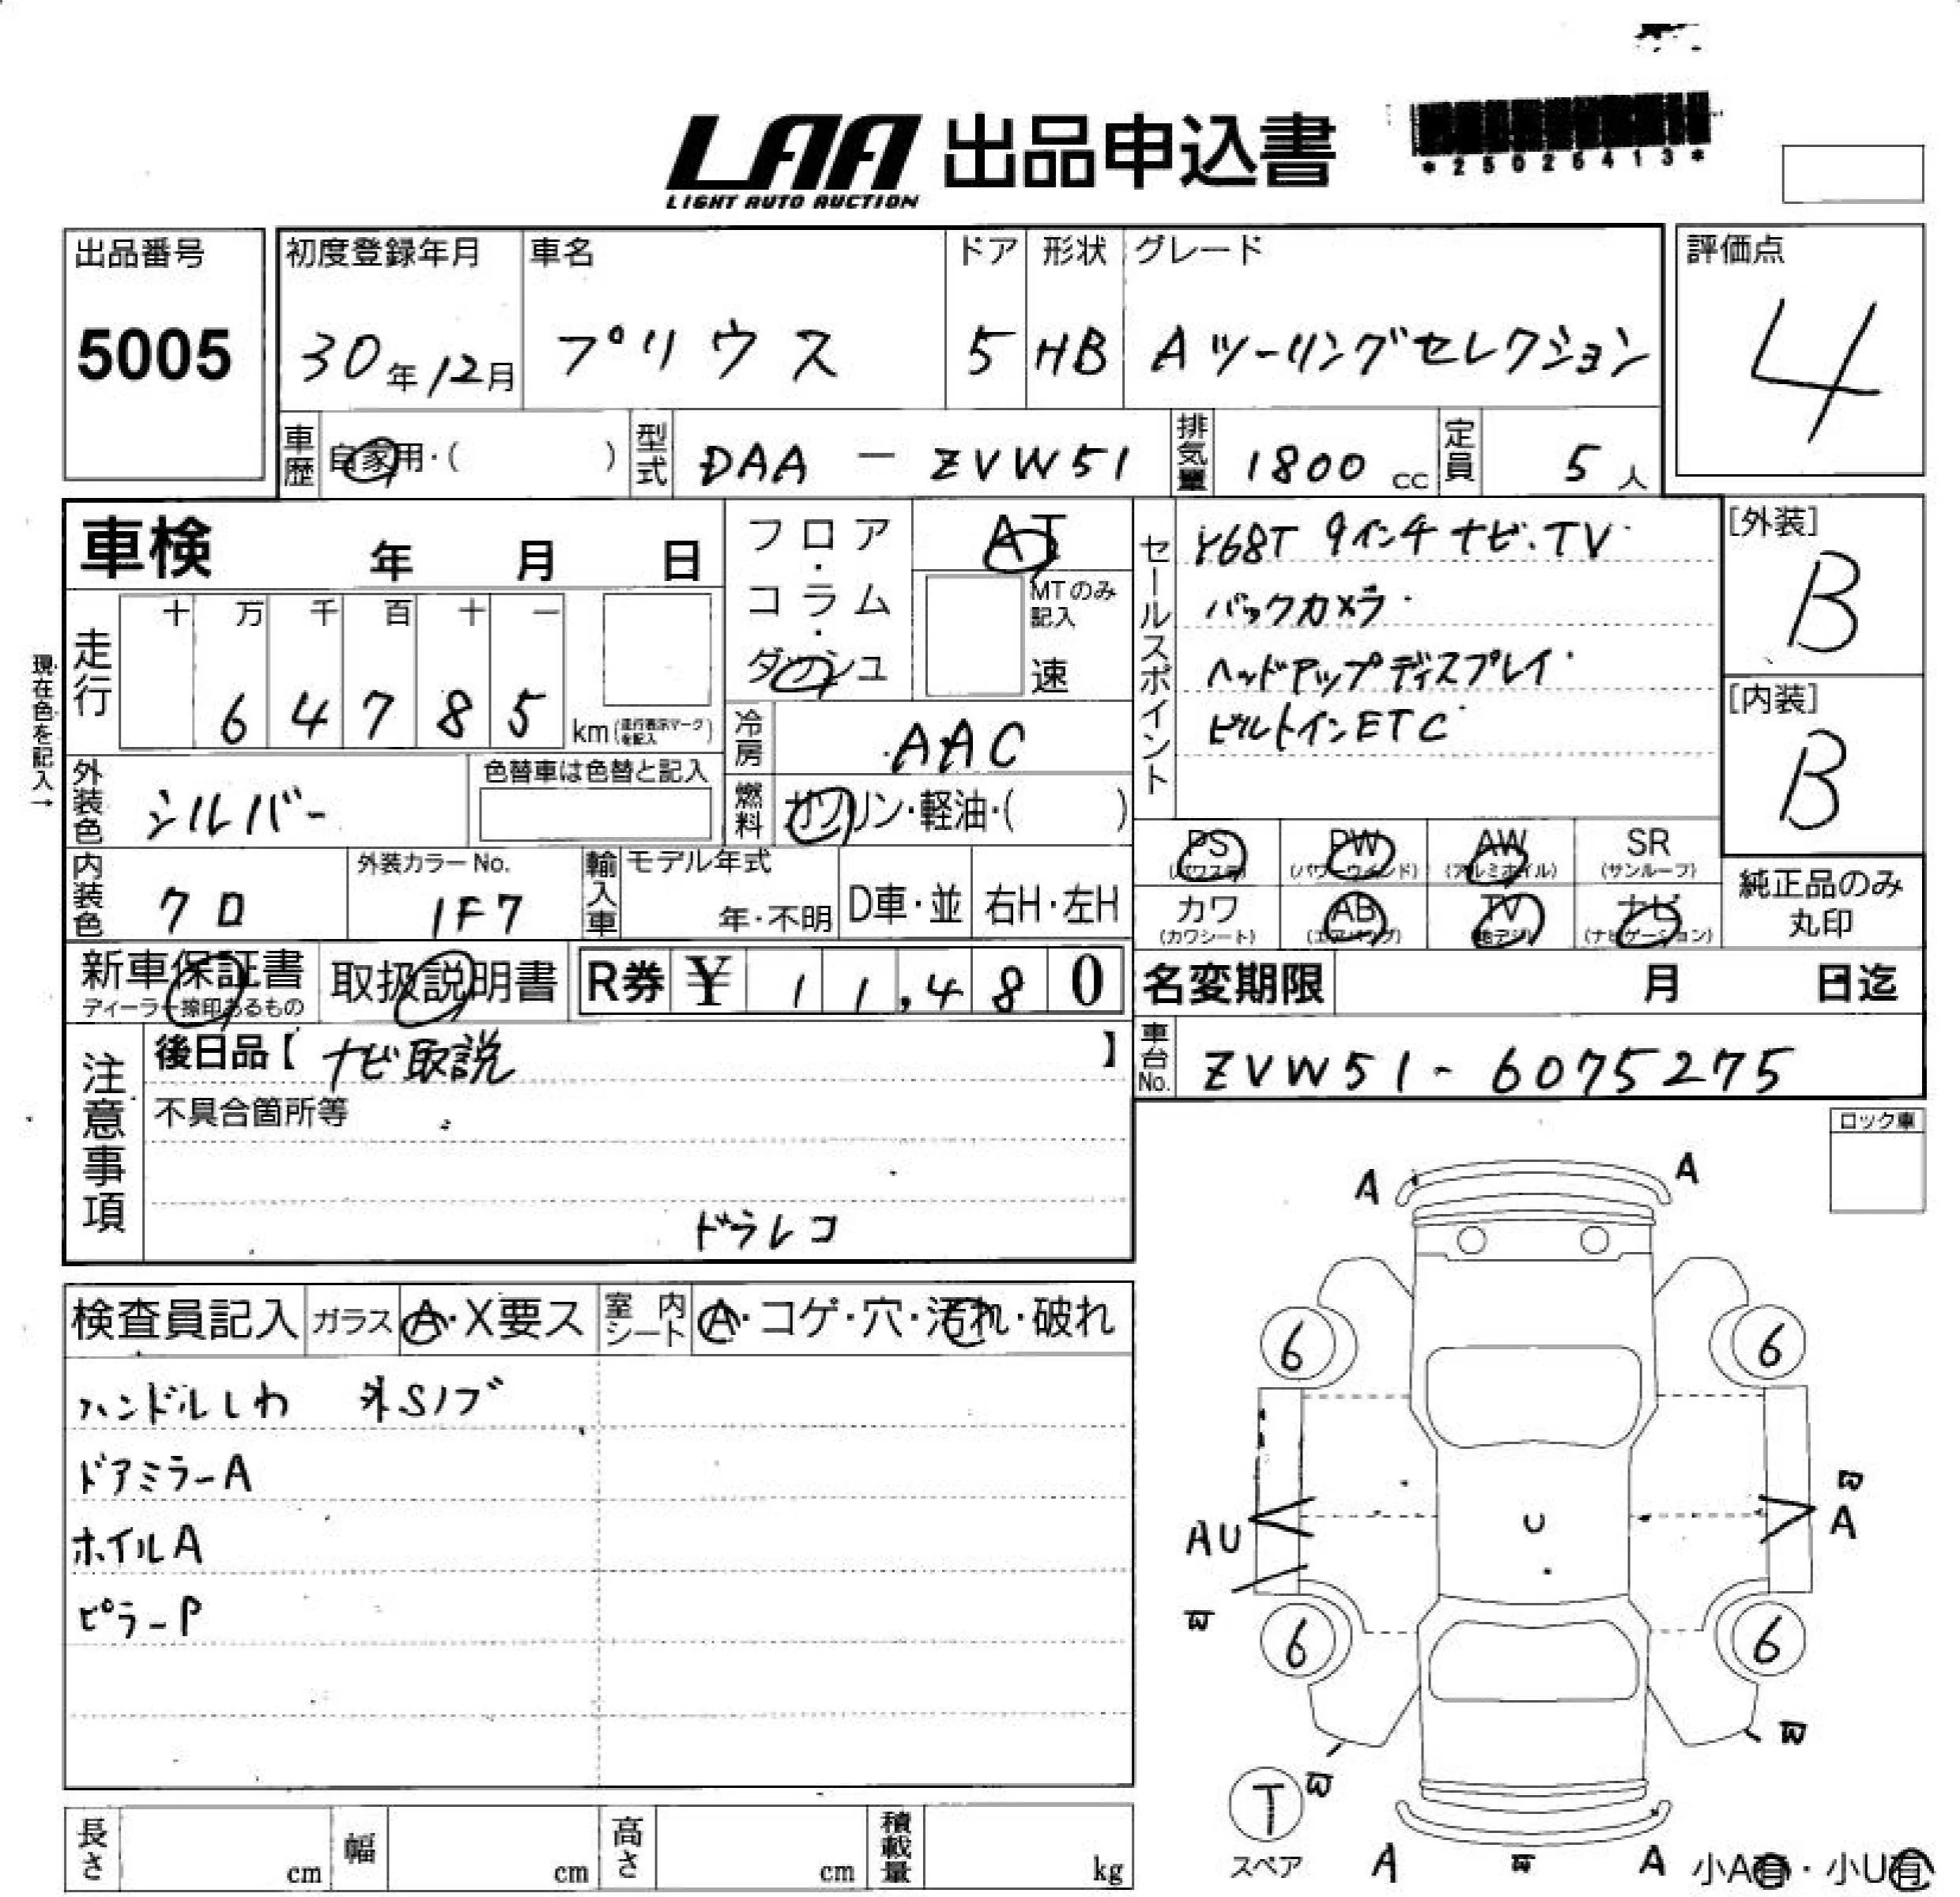 LAA 出品申込書
LIGHT AUTO AUCTION
*25026413*
出品番号
5005
初度登録年月
30年12月
車名
プリウス
ドア
5
形状
HB
グレード
Aツーリングセレクション
評価点
4
車歴 自家用・( )
型式 DAA-ZVW51
排気量 1800cc
定員 5人
車検 年 月 日
フロア・コラム・ダッシュ
AT
MTのみ記入
速
セールスポイント
Y68T 9インチナビ.TV
バックカメラ
ヘッドアップディスプレイ
ビルトインETC
[外装]
B
[内装]
B
現在色を記入→
走行
十 万 千 百 十 一
6 4 7 8 5 km (走行表示マークを記入)
冷房 AAC
外装色 シルバー
色替車は色替と記入
燃料 ガソリン・軽油・( )
PS (パワステ)
PW (パワーウインド)
AW (アルミホイル)
SR (サンルーフ)
カワ (カワシート)
AB (エアバッグ)
TV (地デジ)
ナビ (ナビゲーション)
純正品のみ丸印
内装色 クロ
外装カラーNo.
1F7
輸入車
モデル年式
年・不明
D車・並
右H・左H
新車保証書
ディーラー捺印あるもの
取扱説明書
R券 ¥ 11,480
名変期限 月 日迄
注意事項
後日品【 ナビ取説 】
不具合箇所等
ドラレコ
車台No. ZVW51-6075275
ロック車
検査員記入
ガラス A・X要ス
室内シート A・コゲ・穴・汚れ・破れ
ハンドルしわ 外Sノブ
ドアミラーA
ホイルA
ピラーP
A A
6 6
AU A
U
6 6
T
スペア
A A
小A有・小U有
長さ cm
幅 cm
高さ cm
積載量 kg